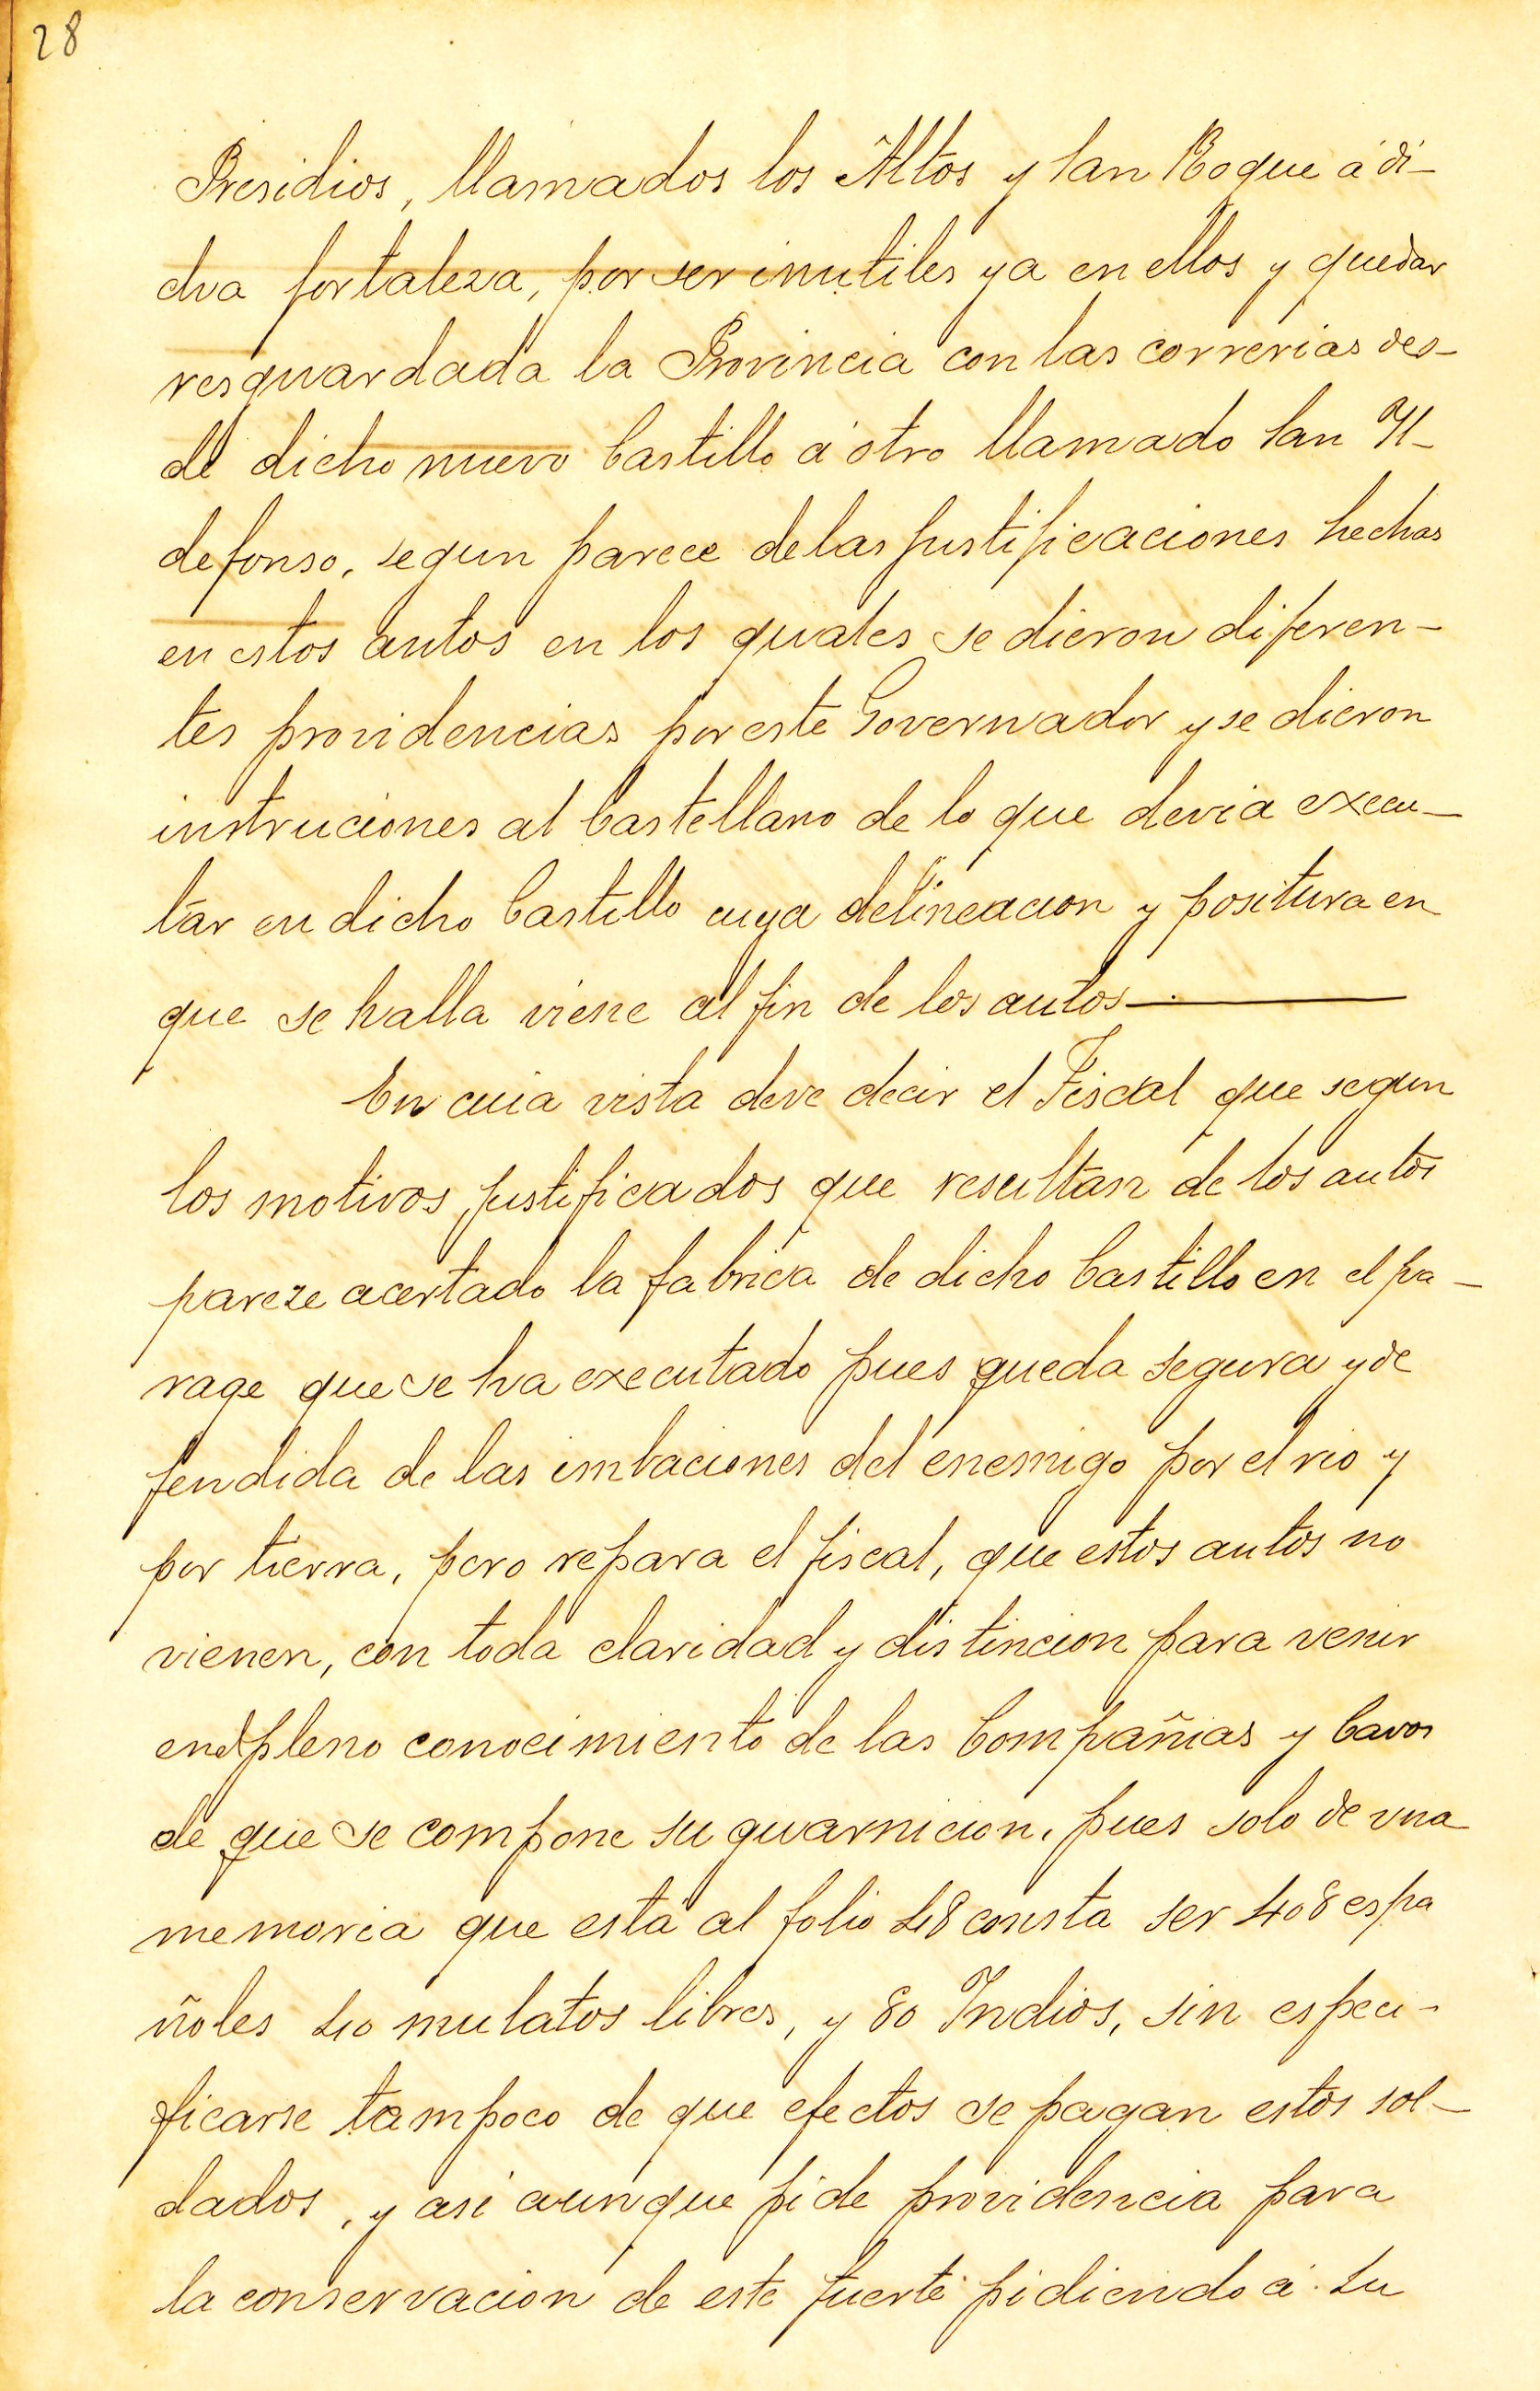 28
Presidios, llamados los Altos y San Roque á di-
cha fortaleza, por ser inutiles ya en ellos y quedar
resguardada la Provincia con las correrias des-
de dicho nuevo Castillo á otro llamado San Yl-
defonso, segun parece de las justificaciones hechas
en estos autos en los quales se dieron diferen-
tes providencias por este Governador y se dieron
instruciones al Castellano de lo que devia execu-
tar en dicho Castillo cuya delineacion y positura en
que se halla viene al fin de los autos
En cuia vista deve decir el Fiscal que segun
los motivos justificados que resultan de los autos
pareze acertado la fabrica de dicho Castillo en el pa-
rage que se ha executado pues queda segura y de
fendida de las imbaciones del enemigo por el rio y
por tierra, pero repara el fiscal, que estos autos no
vienen, con toda claridad y distincion para venir
en el pleno conocimiento de las Compañias y Cavos
de que se compone su guarnicion, pues solo de vna
memoria que está al folio 48 consta ser 408 espa
ñoles 40 mulatos libres, y 80 Indios, sin especi-
ficarse tampoco de que efectos se pagan estos sol-
dados, y asi aunque pide providencia para
la conservacion de este fuerte pidiendo á Su